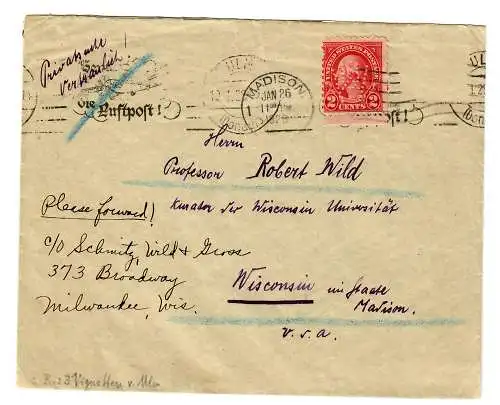 Privatsache
Vertraulich!
ULM
MADISON
JAN 26
1
UNITED STATES POSTAGE
2 CENTS 2
die Luftpost!
post!
(Donau)
Herrn
Professor Robert Wild
Kurator der Wisconsin Universität
Please forward!
c/o Schmitz, Wild & Gross
373 Broadway
Milwaukee, Wis.
Wisconsin im Staate
Madison.
U.S.A.
3 Vignetten v. Ulm